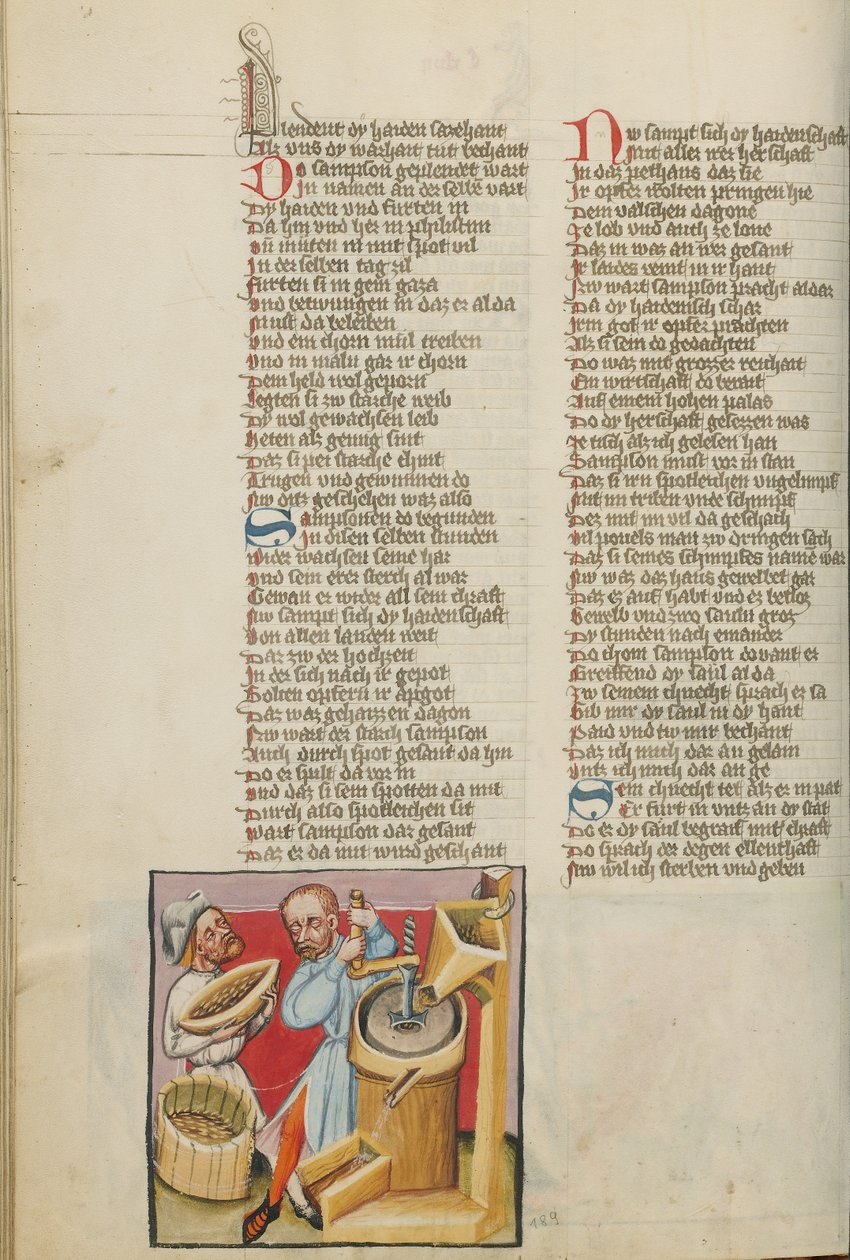 Plendent dy haiden sazehant
Alz vns dy warhait tut bechant
Do sampson geplendet wart
In namen an der selbē vart
Dy haiden vnd furten in
Da hin vnd her in philistim
vn̄ muten in mit spot vil
In der selben tag zil
furten si in gein gaza
vnd betwungen in daz er al da
Must da beleiben
vnd ein chorn mul treiben
vnd in maln gar ir chorn
Dem held wol geporn
legten si zw starche weib
Dy wol gewachsen leib
Heten als genug sint
Daz si pei starche chint
Trugen vnd gewunnen do
Nw ditz geschehen waz also
Sampsonen do begunden
In disen selben stunden
wider wachsen seine har
vnd sein erer sterch al war
Gewan er wider all sein chraft
Nw sampt sich dy haidenschaft
Von allen landen weit
Dar zw der hochzeit
In der sich nach ir gepot
Solten opfern ir apgot
Daz waz gehaizzen dagon
Nw wart der starch sampson
Auch durch spot gesant da hin
Do er spilt da vor in
vnd daz si sein spotten da mit
Durch also spotleichen sit
wart sampson dar gesant
Daz er da mit wurd geschant
Nw sampt sich dy haidenschaft
Mit aller irer herschaft
In daz pethaus daz sie
Ir opfer wolten pringen hie
Dem valschen dagone
Ze lob vnd auch ze lone
Daz in waz an wer gesant
Ir landes veint in ir hant
Nw wart sampson pracht aldar
Da dy haidenisch schar
Irm got ir opfer prachten
Alz si sein do gedachten
Do waz mit grozzer reichait
Ein wirtschaft do berait
Auf einem hohen palas
Do dy herschaft gesezzen was
Ze tisch als ich gelesen han
Sampson must vor in stan
Daz si irn spotleichen vngelimpf
Mit im triben vnde schimpf
Dez mit im vil da geschach
vil pouels man zw dringen sach
Daz si seines schimpfes name war
Nw waz daz haus gewelbet gar
Daz ez auf habt vnd ez besloz
Gewelb vnd zwo sauln groz
Dy stunden nach einander
Do chom sampson do vant er
Greiffend dy saul al da
Zw seinem chnecht sprach er sa
Gib mir dy saul in dy hant
Paid vnd tw mir bechant
Daz ich mich dar an gelain
vntz ich mich dar an ge
Sein chnecht tet als er in pat
Er furt in vntz an dy stat
Do er dy saul begraif mit chraft
Do sprach der degen ellenthaft
Nw wil ich sterben vnd geben
189